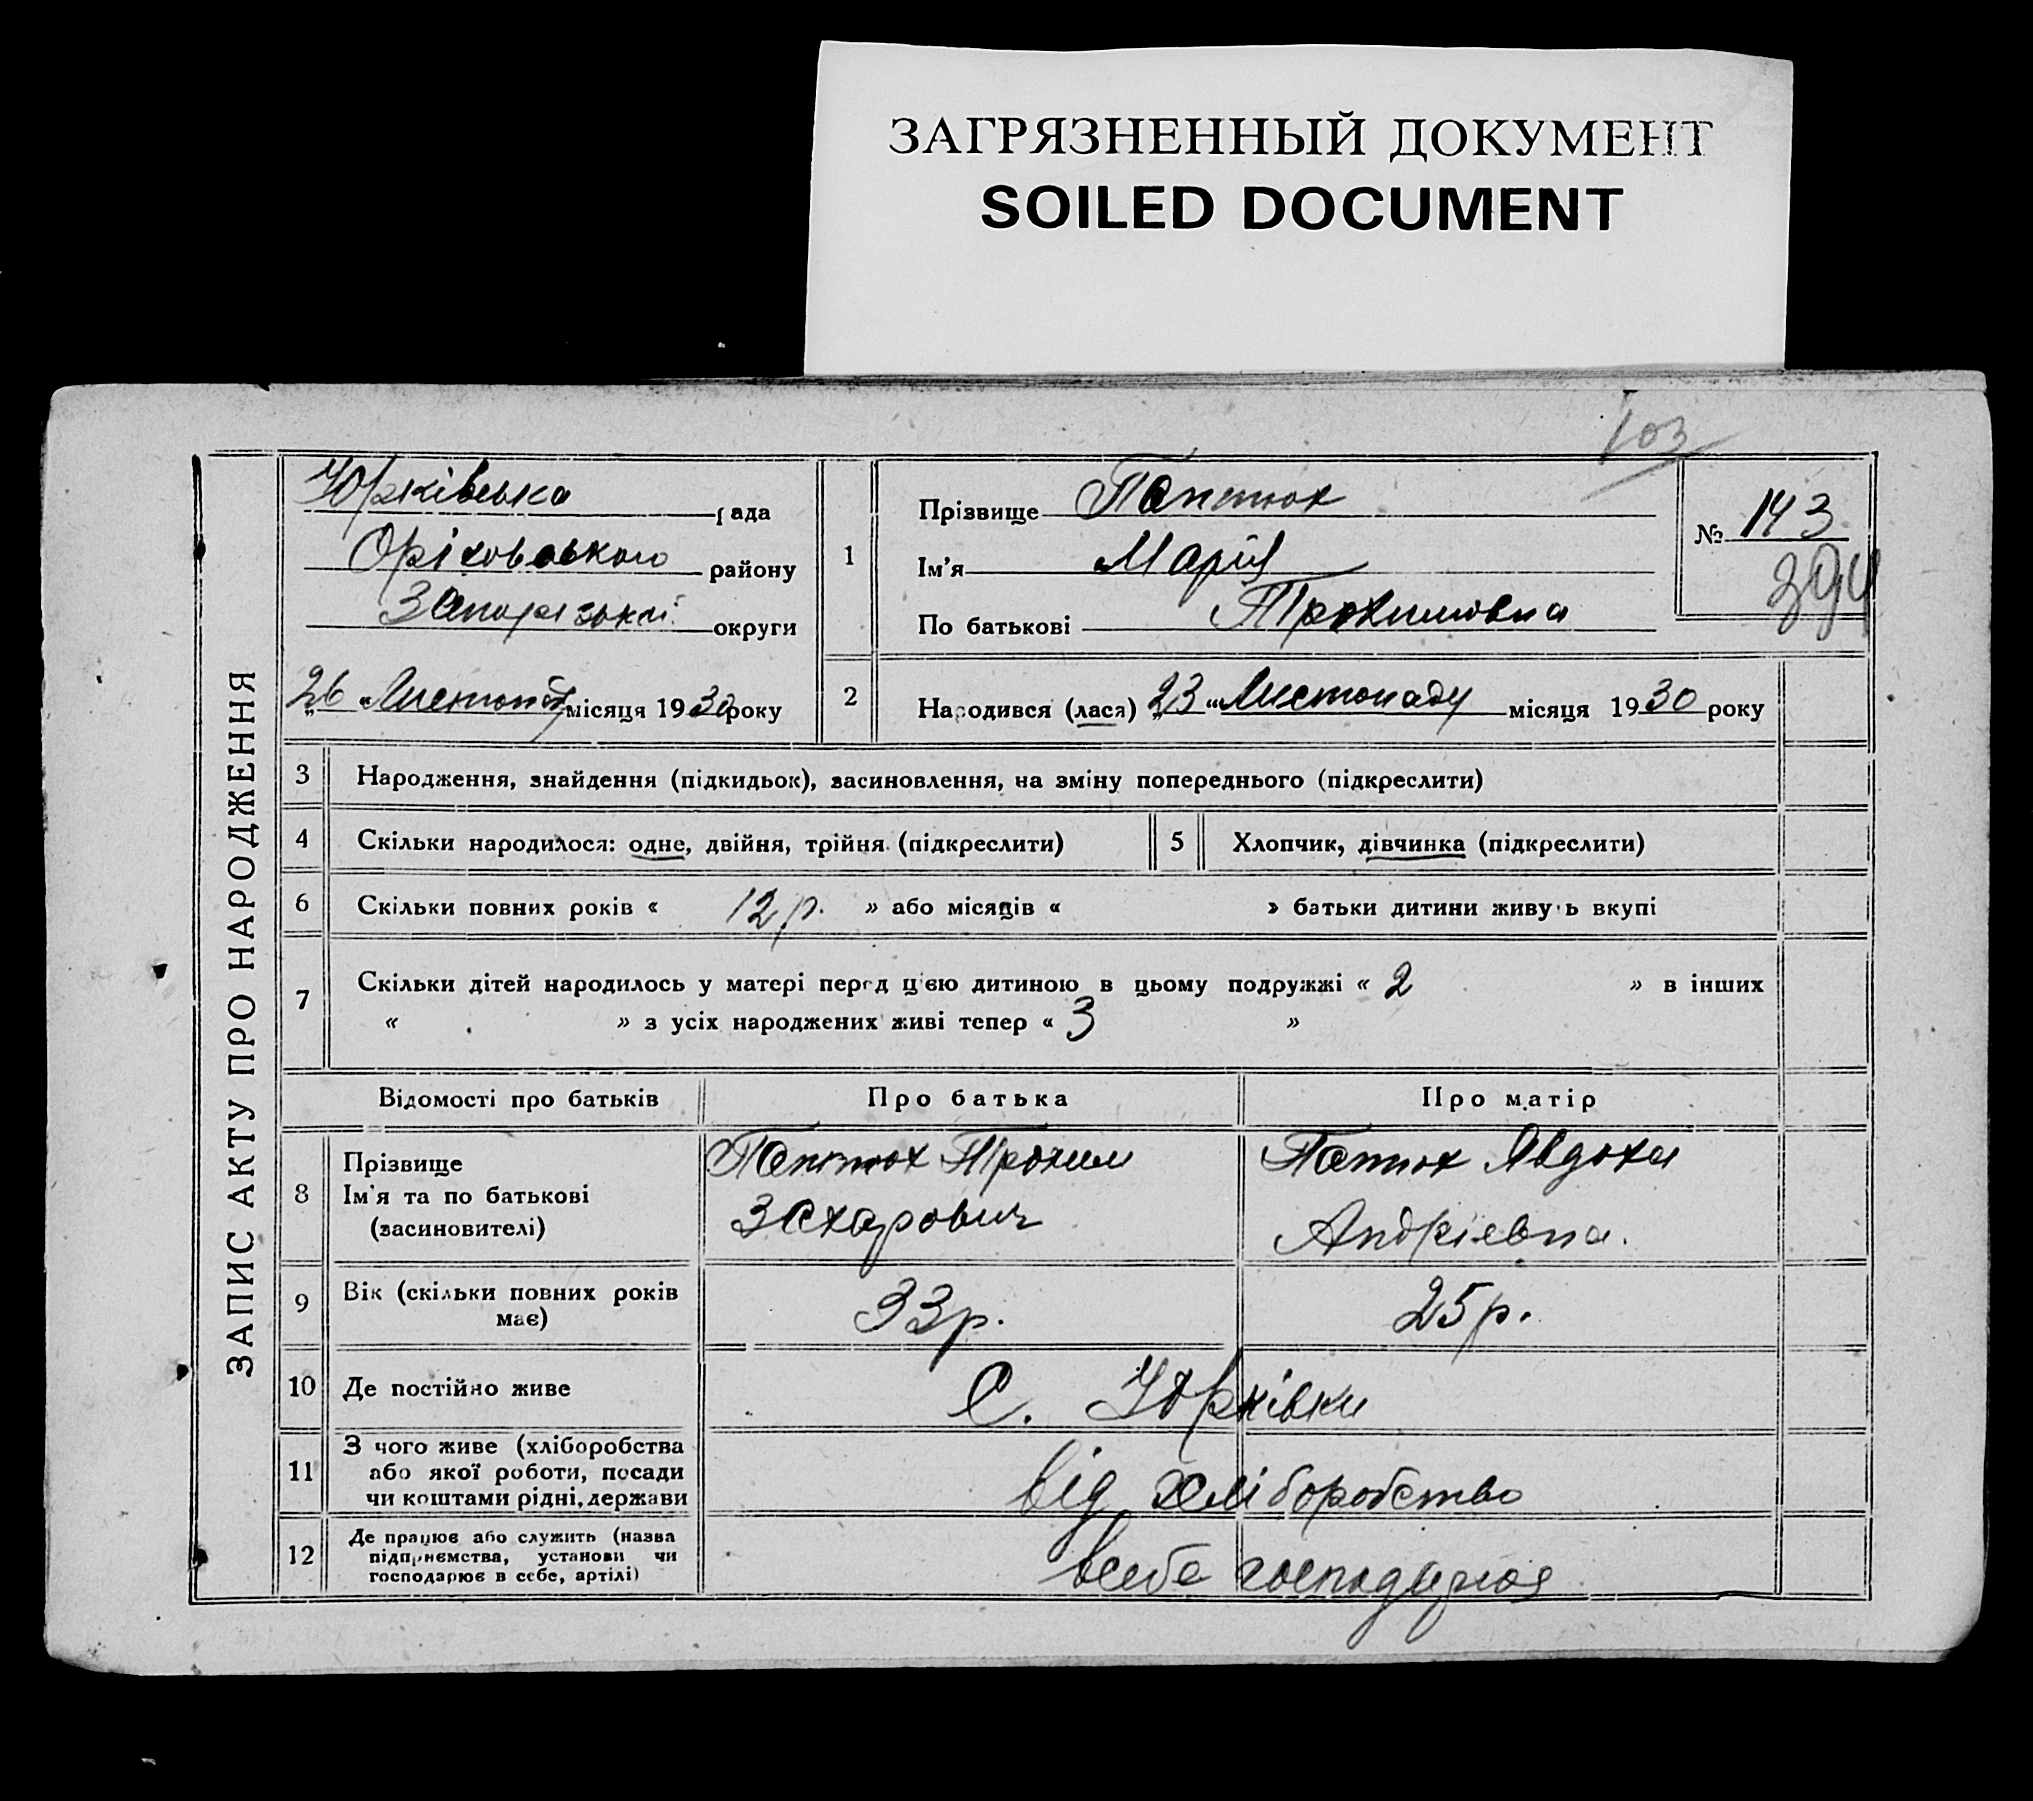 ЗАГРЯЗНЕННЫЙ ДОКУМЕНТ
SOILED DOCUMENT
103
ЗАПИС АКТУ ПРО НАРОДЖЕННЯ
Юрківська рада
Оріховського району
Запоріської округи
26 Листопад місяця 1930 року
1
Прізвище
Ім'я Марія
По батькові Трохимовна
№ 143
394
2 Народився (лася) „23“ Листопаду місяця 1930 року
3 Народження, знайдення (підкидьок), засиновлення, на зміну попереднього (підкреслити)
4 Скільки народилося: одне, двійня, трійня (підкреслити) 5 Хлопчик, дівчинка (підкреслити)
6 Скільки повних років « 12 р. » або місяців « » батьки дитини живуть вкупі
7 Скільки дітей народилось у матері перед цією дитиною в цьому подружжі « 2 » в інших
« » з усіх народжених живі тепер « 3 »
Відомості про батьків Про батька Про матір
8 Прізвище Трохим Явдоха
Ім'я та по батькові Захарович Андріевна.
(засиновителі)
9 Вік (скільки повних років має) 33 р. 25 р.
10 Де постійно живе С. Юрківки
11 З чого живе (хліборобства
або якої роботи, посади від хліборобство
чи коштами рідні, держави
12 Де працює або служить (назва
підприємства, установи чи всебе господарюя
господарює в себе, артілі)